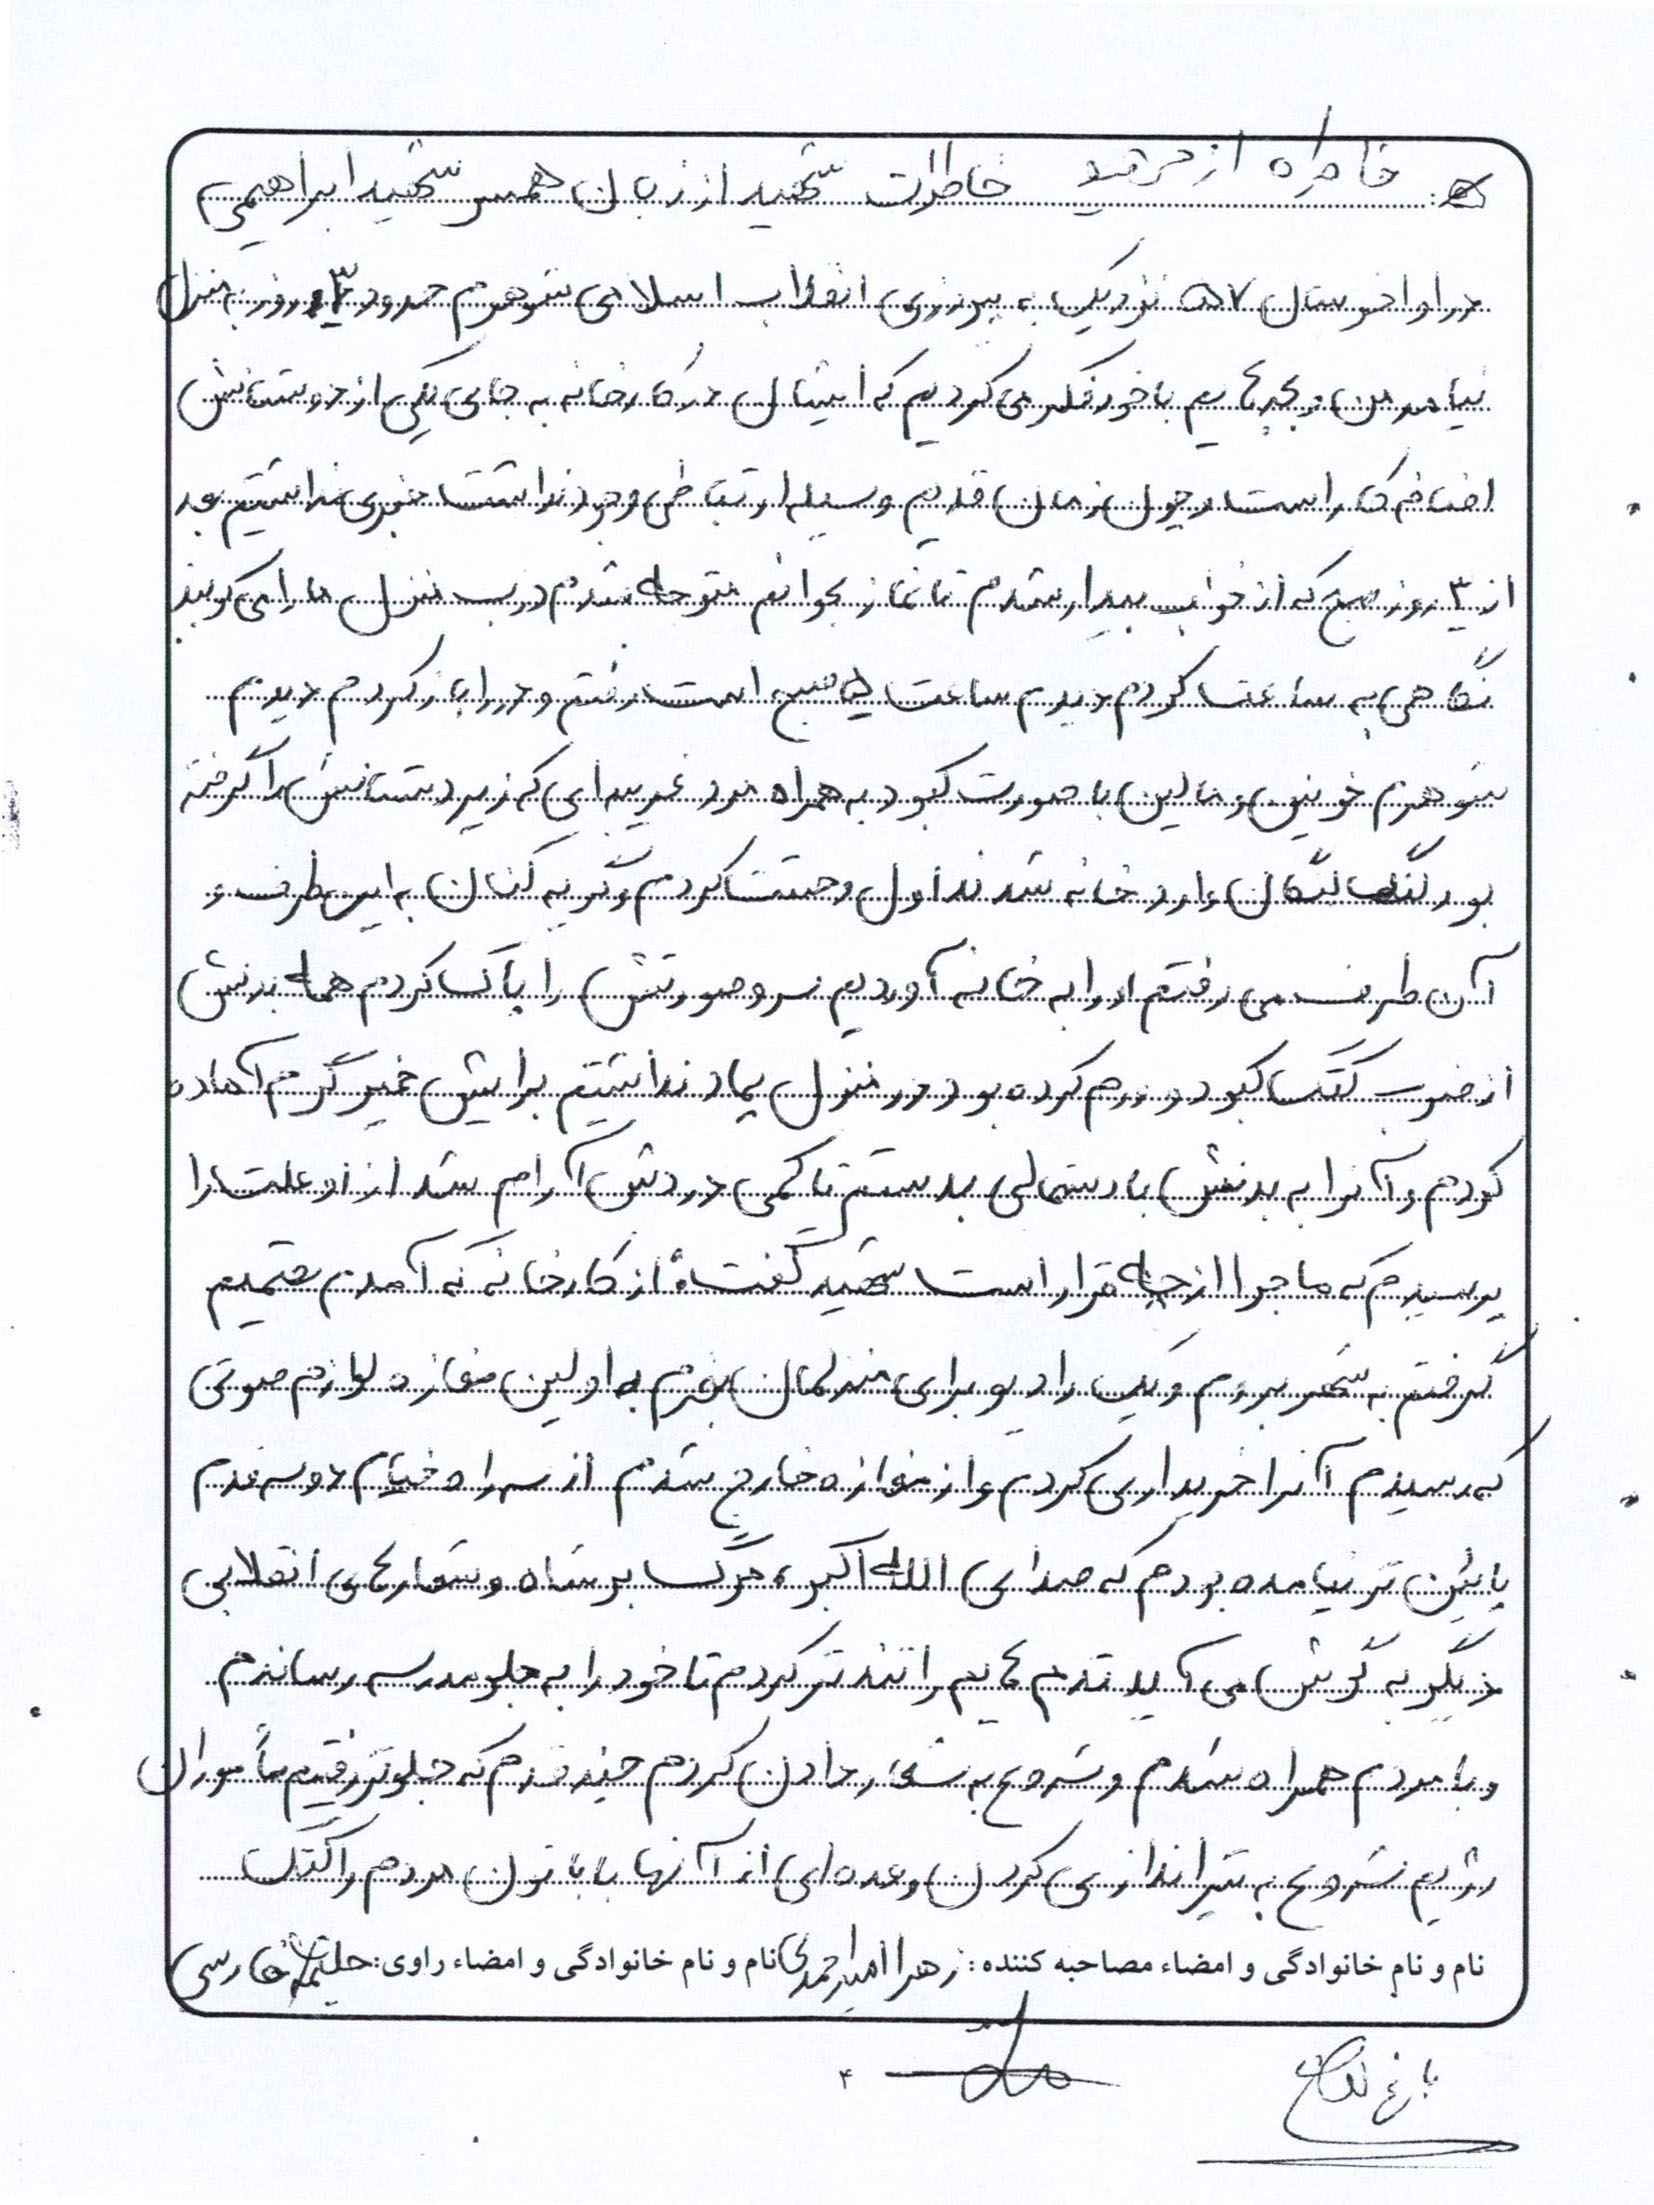 خاطره از خاطرات شهید از زبان همسر شهید ابراهیمی
در اواخر سال ۵۷ نزدیک به پیروزی انقلاب اسلامی شوهرم حدود ۳ روز به منزل
نیامد من و بچه‌هایم با خود فکر می‌کردیم که ایشان در کارخانه به جای یکی از دوستانش
اضافه کار است و چون زمان قدیم وسیله ارتباطی وجود نداشت خبری نداشتیم بعد
از ۳ روز صبح که از خواب بیدار شدم تا نماز بخوانم متوجه شدم درب منزل ما را می‌کوبند
نگاهی به ساعت کردم دیدم ساعت ۵ صبح است رفتم و در را باز کردم دیدم
شوهرم خونین و مالین با صورت کبود به همراه مرد غریبه‌ای که زیر دستانش را گرفته
بود لنگ لنگان وارد خانه شدند اول وحشت کردم و گریه کنان به این طرف و
آن طرف می رفتم او را به خانه آوردیم سر و صورتش را پاک کردم همه بدنش
از ضرب کتک کبود و ورم کرده بود در منزل پماد نداشتیم برایش خمیر گرم آماده
کردم و آنرا به بدنش با دستمالی بستم تا کمی دردش آرام شد از او علت را
پرسیدم که ماجرا از چه قرار است شهید گفت: از کارخانه که آمدم تصمیم
گرفتم به شهر بروم و یک رادیو برای منزلمان بخرم به اولین مغازه لوازم صوتی
که رسیدم آنرا خریداری کردم و از مغازه خارج شدم از سه راه خیام دو سه قدم
پایین تر نیامده بودم که صدای الله اکبر، مرگ بر شاه و شعارهای انقلابی
دیگر به گوش می آید قدم هایم را تند تر کردم تا خود را به جلو مدرسه رساندم
و با مردم همراه شدم و شروع به شعار دادن کردم چند قدم که جلوتر رفتیم مأموران
رژیم شروع به تیراندازی کردن و عده‌ای از آنها با باتون مردم را کتک
نام و نام خانوادگی و امضاء مصاحبه کننده: زهرا امیراحمدی نام و نام خانوادگی و امضاء راوی: حلیمه فارسی
۴